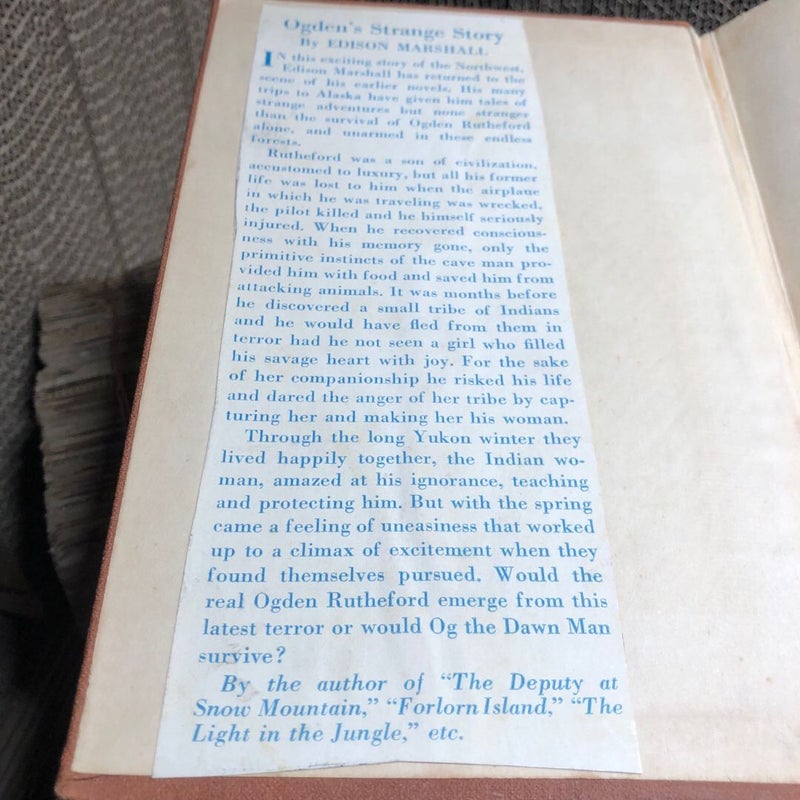 Ogden's Strange Story
By EDISON MARSHALL
IN this exciting story of the Northwest,
Edison Marshall has returned to the
scene of his earlier novels. His many
trips to Alaska have given him tales of
strange adventures but none stranger
than the survival of Ogden Rutheford
alone, and unarmed in these endless
forests.
Rutheford was a son of civilization,
accustomed to luxury, but all his former
life was lost to him when the airplane
in which he was traveling was wrecked,
the pilot killed and he himself seriously
injured. When he recovered conscious-
ness with his memory gone, only the
primitive instincts of the cave man pro-
vided him with food and saved him from
attacking animals. It was months before
he discovered a small tribe of Indians
and he would have fled from them in
terror had he not seen a girl who filled
his savage heart with joy. For the sake
of her companionship he risked his life
and dared the anger of her tribe by cap-
turing her and making her his woman.
Through the long Yukon winter they
lived happily together, the Indian wo-
man, amazed at his ignorance, teaching
and protecting him. But with the spring
came a feeling of uneasiness that worked
up to a climax of excitement when they
found themselves pursued. Would the
real Ogden Rutheford emerge from this
latest terror or would Og the Dawn Man
survive?
By the author of "The Deputy at
Snow Mountain," "Forlorn Island," "The
Light in the Jungle," etc.